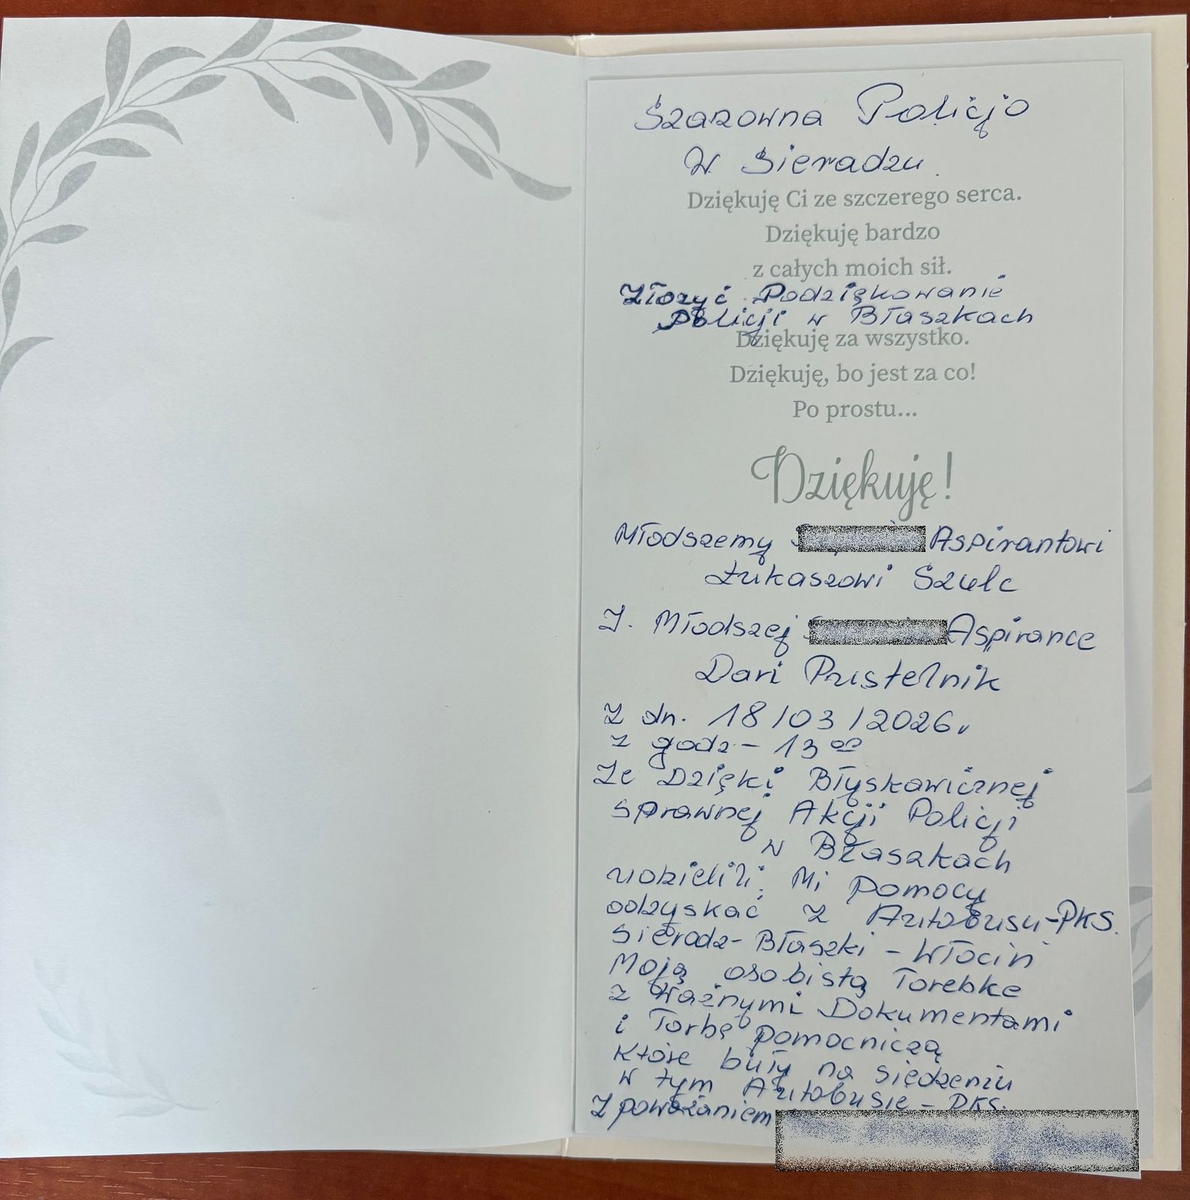 Szazowna Policjo
W Sieradzu.
Dziękuję Ci ze szczerego serca.
Dziękuję bardzo
z całych moich sił.
Złozyć Podziękowanie
Policji w Błaszkach
Dziękuję za wszystko.
Dziękuję, bo jest za co!
Po prostu...
Dziękuję!
Młodszemy Aspirantowi
Łukaszowi Szulc
I. Młodszej Aspirance
Dari Pustelnik
Z dn. 18/03/2026r
z godz - 13 00
Ze Dzięki Błyskawicznej
sprawnej Akcji Policji
w Błaszkach
udzielili Mi pomocy
odzyskać z Autobusu-PKS.
Sieradz-Błaszki - Włocin
Moją osobistą Torebke
z Ważnymi Dokumentami
i Torbę pomocniczą
które były na siedzeniu
w tym Autobusie - PKS.
Z poważaniem